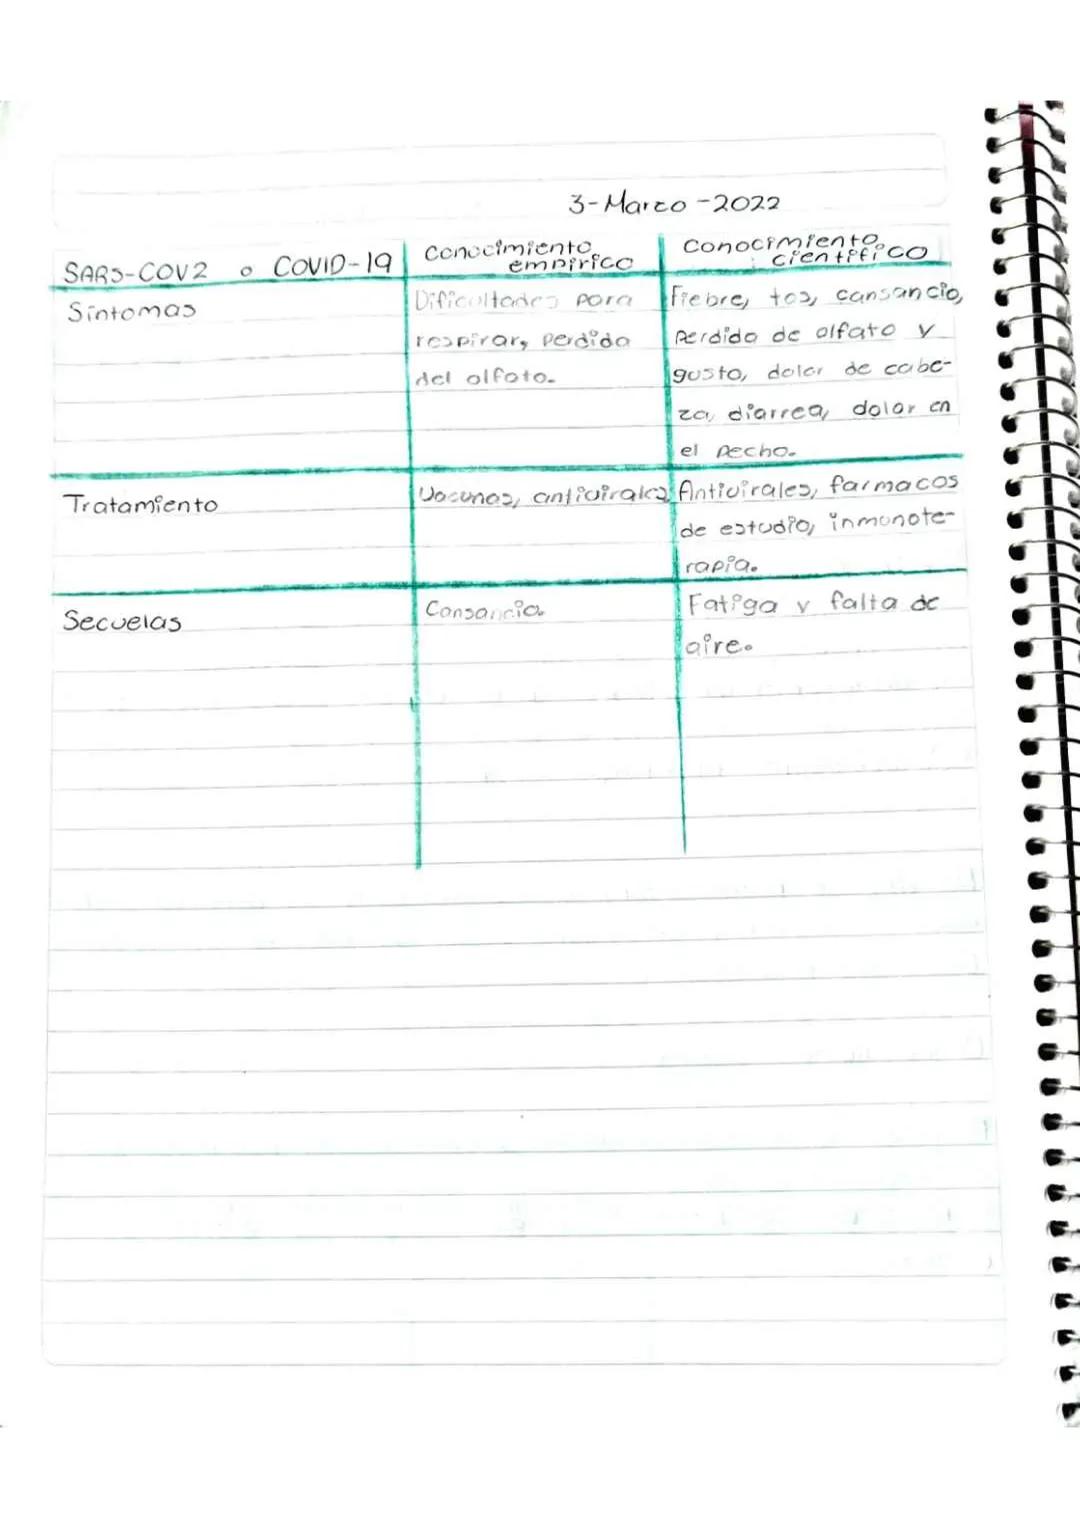 3-Marzo-2022
SARS-COV2 o COVID-19
Conocimiento
empirico
Conocimiento
cientifico
Sintomas
Dificultades para
respirar, perdida
del olfato.
Fiebre, tos, cansancio,
perdida de olfato y
gusto, dolor de cabe-
za, diarrea, dolor en
el pecho.
Tratamiento
Vacunas, antivirales
Antivirales, farmacos
de estudio, inmunote-
rapia.
Secuelas
Cansancio.
Fatiga y falta de
aire.